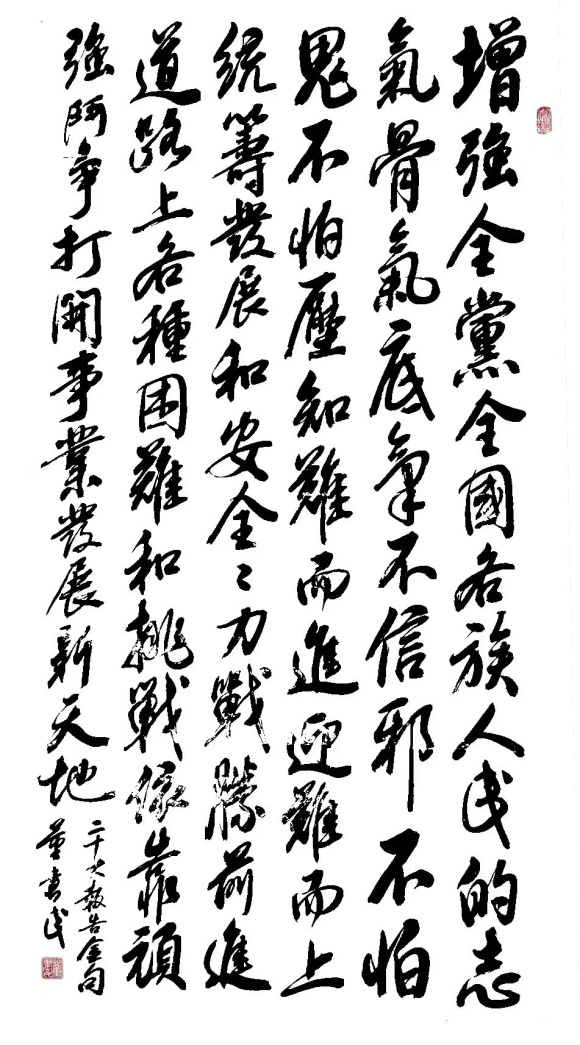 增強全黨全國各族人民的志
氣骨氣底氣不信邪不怕
鬼不怕壓知難而進迎難而上
統籌發展和安全〻力戰勝前進
道路上各種困難和挑戰依靠頑
強鬥爭打開事業發展新天地
二十大報告金句